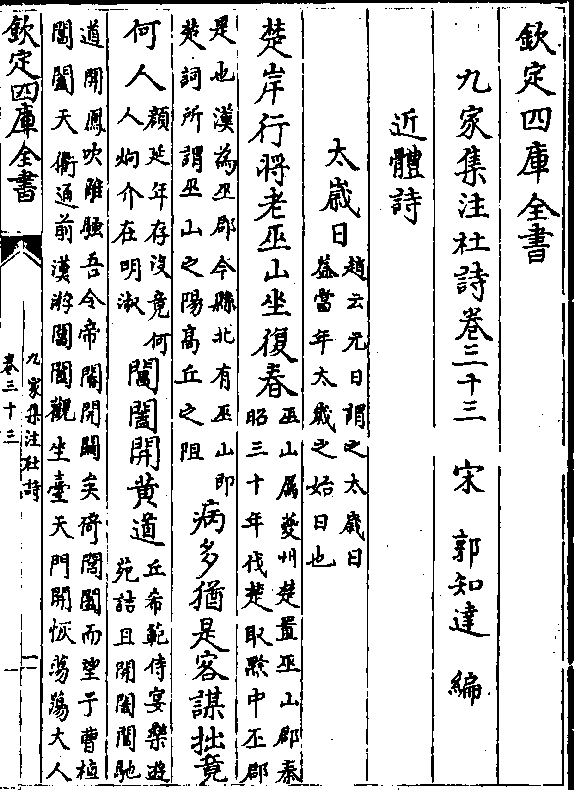 欽定四庫全書
九家集注杜詩卷三十三　宋　郭知達　編
近體詩
太歲日
趙云元日謂之太歲日
蓋當年太歲之始日也
楚岸行將老巫山坐復春
巫山屬夔州楚置巫山郡秦
昭三十年伐楚取黔中巫郡
是也漢為巫郡今縣北有巫山即
楚詞所謂巫山之陽高丘之阻
病多猶是客謀拙竟
何人
顏延年存沒竟何
人人炯介在明淑
閶闔開黃道
丘希範侍宴樂遊
苑詰且開閶闔馳
道開鳳吹離騷吾令帝閽開關矣倚閶闔而望于曹植
閶闔天衢通前漢游閶闔觀坐臺天門開恢蕩蕩大人
欽定四庫全書
九家集注杜詩
卷三十三
一